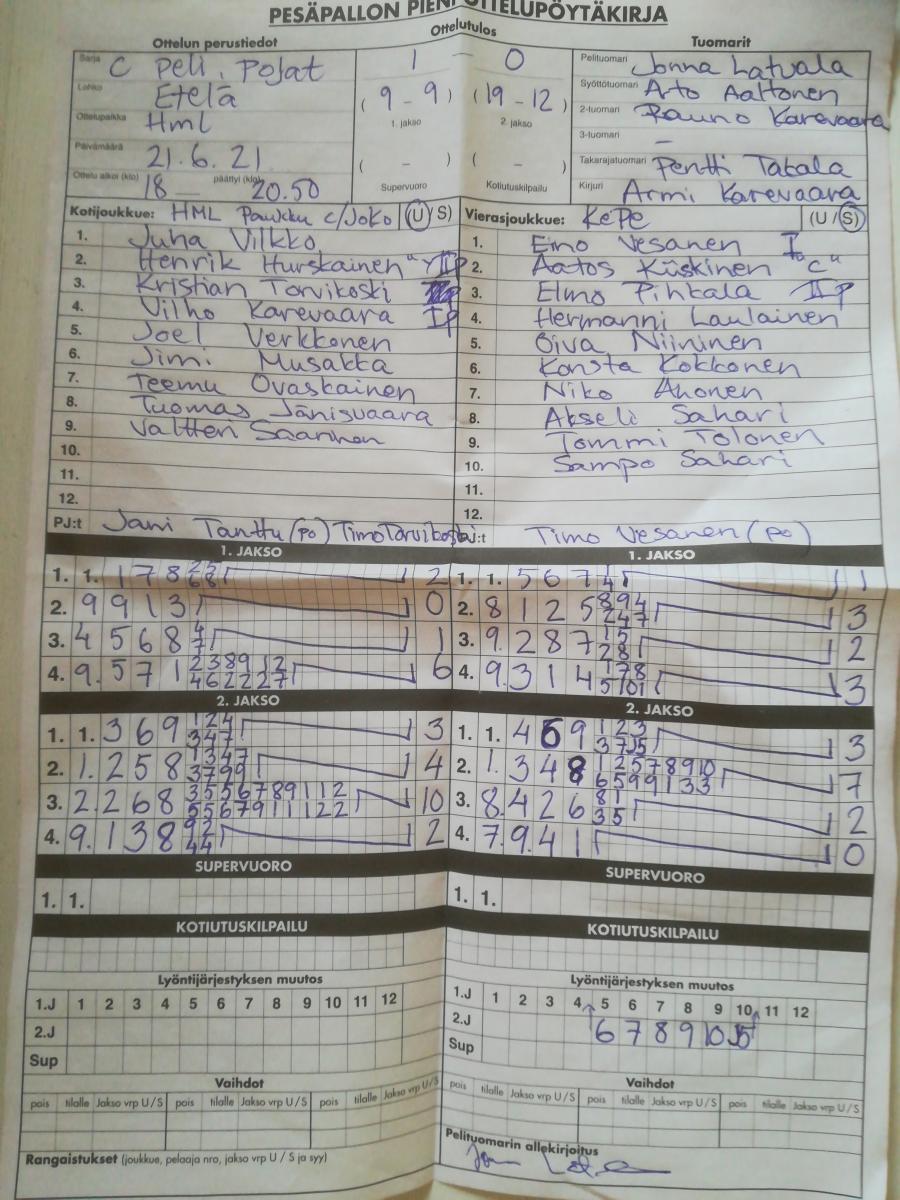 PESÄPALLON PIENI OTTELUPÖYTÄKIRJA
Ottelun perustiedot
Ottelutulos
Tuomarit
Sarja C peli, pojat
Lohko Etelä
Ottelupaikka Hml
Päivämäärä 21.6.21
Ottelu alkoi (klo) 18 — päättyi (klo) 20.50
1 — 0
( 9 - 9 ) ( 19 - 12 )
1. jakso 2. jakso
( - ) ( - )
Supervuoro Kotiutuskilpailu
Pelituomari Jonna Latvala
Syöttötuomari Arto Aaltonen
2-tuomari Rauno Karevaara
3-tuomari –
Takarajatuomari Pentti Takala
Kirjuri Armi Karevaara
Kotijoukkue: HML Paukku C/JoKo (U/S)
1. Juha Vilkko
2. Henrik Hurskainen
3. Kristian Torvikoski
4. Vilho Karevaara Ip
5. Joel Verkkonen
6. Jimi Musakka
7. Teemu Ovaskainen
8. Tuomas Jänisvaara
9. Valtteri Saarinen
10.
11.
12.
PJ:t Jani Tanttu (po) Timo Torvikoski
Vierasjoukkue: KePe (U/S)
1. Eino Vesanen
2. Aatos Kiiskinen "C"
3. Elmo Pihkala IIp
4. Hermanni Laulainen
5. Oiva Niininen
6. Konsta Kokkonen
7. Niko Ahonen
8. Akseli Sahari
9. Tommi Tolonen
10. Sampo Sahari
11.
12.
PJ:t Timo Vesanen (po)
1. JAKSO
1. 1. 1 7 8 2
2. 9 9 1 3 0
3. 4 5 6 8 4 7 1
4. 9. 5 7 1 6
1. JAKSO
1. 1. 5 6 7 1
2. 8 1 2 5 8 9 4 2 4 7 3
3. 9. 2 8 7 1 5 2 8 2
4. 9. 3 1 4 3
2. JAKSO
1. 1. 3 6 9 1 2 4 3 4 7 3
2. 1. 2 5 8 1 3 4 7 3 7 9 9 4
3. 2. 2 6 8 3 5 5 6 7 8 9 1 1 2 5 5 6 7 9 1 1 1 2 2 10
4. 9. 1 3 8 9 2 4 4 2
2. JAKSO
1. 1. 4 6 9 1 2 3 3
2. 1. 3 4 8 1 2 5 7 8 9 10 6 5 9 9 1 3 3 7
3. 8. 4 2 6 8 1 3 5 2
4. 7. 9. 4 1 0
SUPERVUORO
1. 1.
SUPERVUORO
1. 1.
KOTIUTUSKILPAILU
KOTIUTUSKILPAILU
Lyöntijärjestyksen muutos
1.J 1 2 3 4 5 6 7 8 9 10 11 12
2.J
Sup
Lyöntijärjestyksen muutos
1.J 1 2 3 4 5 6 7 8 9 10 11 12
2.J 6 7 8 9 10 5
Sup
Vaihdot
pois tilalle Jakso vrp U/S pois tilalle Jakso vrp U/S pois tilalle Jakso vrp U/S
Vaihdot
pois tilalle Jakso vrp U/S pois tilalle Jakso vrp U/S pois tilalle Jakso vrp U/S
Rangaistukset (joukkue, pelaaja nro, jakso vrp U/S ja syy)
Pelituomarin allekirjoitus